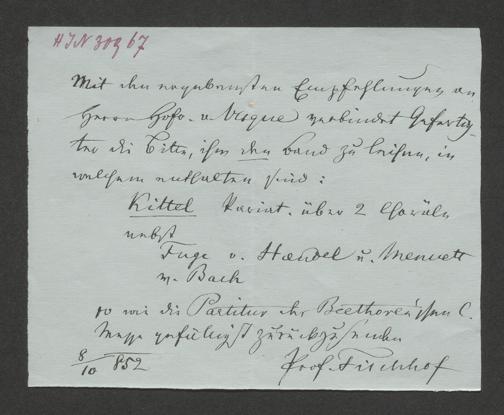 HIN 30967
Mit den ergebensten Empfehlungen an
Herrn Hofr. v Vesque verbindet Gefertig-
ter die Bitte, ihm den Band zu leihen, in
welchem enthalten sind:
Kittel Variat. über 2 Choräle
nebst
Fuge v. Haendel u. Menuett
v. Bach
so wie die Partitur der Beethoven'schen C.
Messe gefälligst zurückzusenden
8/10 852
Prof. Fischhof